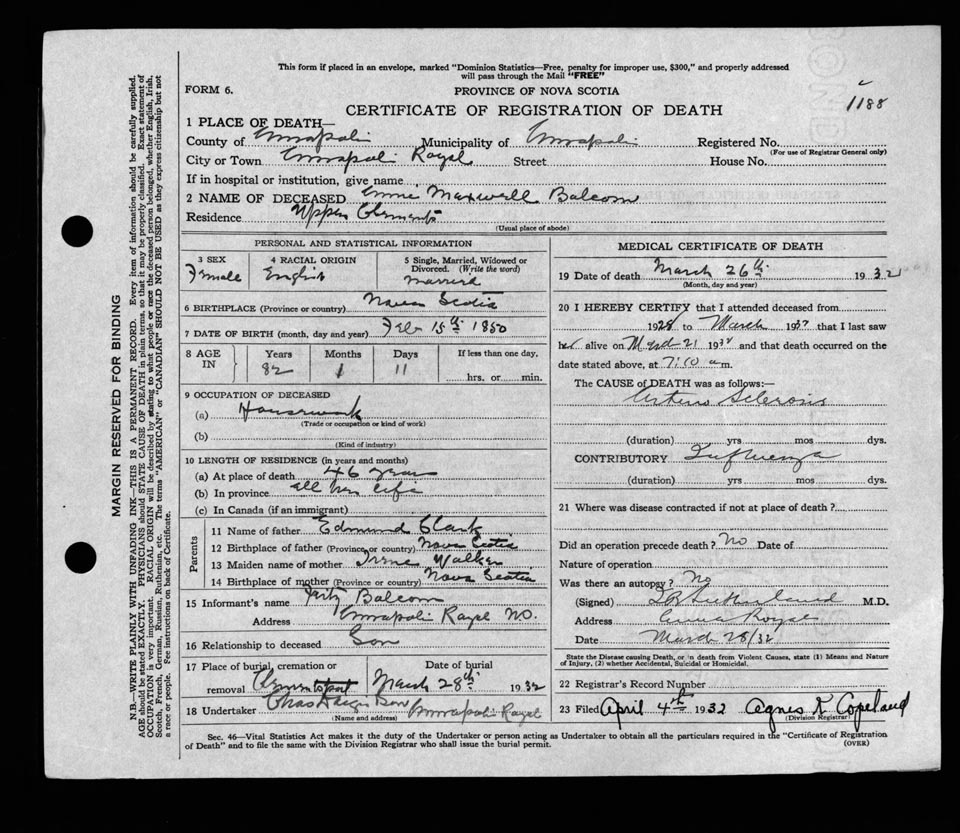 This form if placed in an envelope, marked "Dominion Statistics—Free, penalty for improper use, $300," and properly addressed
will pass through the Mail "FREE"
FORM 6.
PROVINCE OF NOVA SCOTIA
1188
CERTIFICATE OF REGISTRATION OF DEATH
1 PLACE OF DEATH—
County of Annapolis Municipality of Annapolis Registered No.
(For use of Registrar General only)
City or Town Annapolis Royal Street House No.
If in hospital or institution, give name
2 NAME OF DECEASED Maxwell Balcom
Residence Upper Clements
(Usual place of abode)
PERSONAL AND STATISTICAL INFORMATION
3 SEX 4 RACIAL ORIGIN 5 Single, Married, Widowed or
Divorced. (Write the word)
Female English married
6 BIRTHPLACE (Province or country) Nova Scotia
7 DATE OF BIRTH (month, day and year) Feb 15th 1850
8 AGE IN Years Months Days If less than one day,
82 1 11 hrs. or min.
9 OCCUPATION OF DECEASED
(a) Housework
(Trade or occupation or kind of work)
(b)
(Kind of industry)
10 LENGTH OF RESIDENCE (in years and months)
(a) At place of death 46 years
(b) In province all her life
(c) In Canada (if an immigrant)
Parents
11 Name of father Edmund Clark
12 Birthplace of father (Province or country) Nova Scotia
13 Maiden name of mother Walker
14 Birthplace of mother (Province or country) Nova Scotia
15 Informant's name Fritz Balcom
Address Annapolis Royal
16 Relationship to deceased Son
17 Place of burial, cremation or Date of burial
removal Clementsport March 28th 1932
18 Undertaker Chas Son Annapolis Royal
(Name and address)
MEDICAL CERTIFICATE OF DEATH
19 Date of death March 26th 1932
(Month, day and year)
20 I HEREBY CERTIFY that I attended deceased from
1928 to March 1932 that I last saw
her alive on March 21 1932 and that death occurred on the
date stated above, at 7:10 a m.
The CAUSE of DEATH was as follows:—
Arterio Sclerosis
(duration) yrs. mos. dys.
CONTRIBUTORY Influenza
(duration) yrs. mos. dys.
21 Where was disease contracted if not at place of death?
Did an operation precede death? No Date of
Nature of operation
Was there an autopsy? No
(Signed) Sutherland M.D.
Address Anna Royal
Date March 28/32
State the Disease causing Death, or in death from Violent Causes, state (1) Means and Nature
of Injury, (2) whether Accidental, Suicidal or Homicidal.
22 Registrar's Record Number
23 Filed April 4th 1932 Agnes K Copeland
(Division Registrar)
Sec. 46—Vital Statistics Act makes it the duty of the Undertaker or person acting as Undertaker to obtain all the particulars required in the "Certificate of Registration
of Death" and to file the same with the Division Registrar who shall issue the burial permit.
(OVER)
MARGIN RESERVED FOR BINDING
N.B.—WRITE PLAINLY WITH UNFADING INK—THIS IS A PERMANENT RECORD. Every item of information should be carefully supplied.
AGE should be stated EXACTLY. PHYSICIANS should STATE CAUSE OF DEATH in plain terms, so that it may be properly classified. Exact statement of
OCCUPATION is very important. RACIAL ORIGIN will be described by stating to what people or race the deceased person belonged, whether English, Irish,
Scotch, French, German, Russian, Ruthenian, etc. The terms "AMERICAN" or "CANADIAN" SHOULD NOT BE USED as they express citizenship but not
a race or people. Fee instructions on back of Certificate.